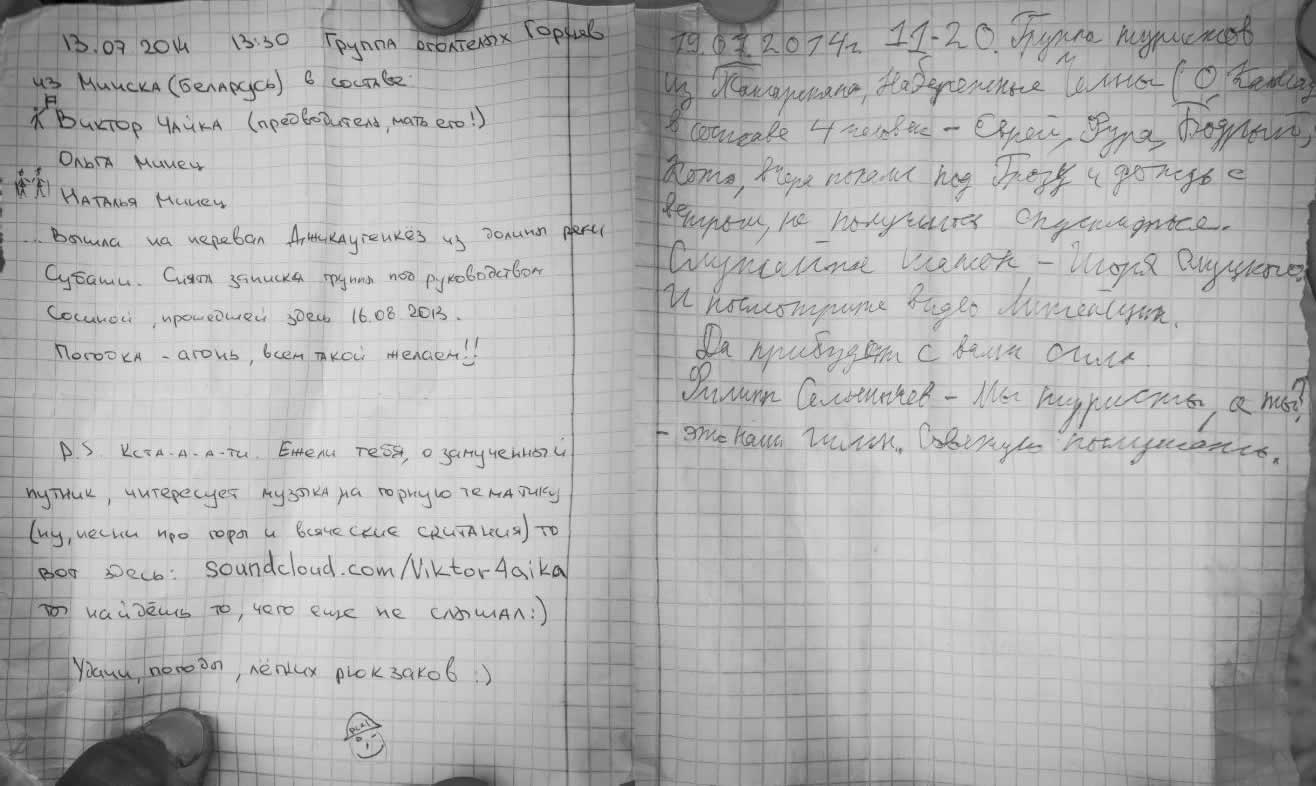 13.07 2014 13:30 Группа оголтелых Горцев
из Минска (Беларусь) в составе:
Виктор Чайка (предводитель, мать его!)
Ольга Минец
Наталья Минец
... Вышла на перевал Джикаугенкёз из долины реки
Субаши. Снята записка группы под руководством
Сосиной, прошедшей здесь 16.08 2013.
Погодка - агонь, всем такой желаем!!
P.S. Кста-а-а-ти. Ежели тебя, о замученный
путник, интересует музыка на горную тематику
(ну, песни про горы и всяческие скитания) то
вот здесь: soundcloud.com/Viktor4aika
ты найдёшь то, чего еще не слышал:)
Удачи, погоды, лёгких рюкзаков :)
19.07 2014г. 11-20. Группа туристов
из Татарстана, Набережные Челны (
в составе 4 человек - Еврей, Фура, Бодрый,
вчера попали под Грозу и дождь с
ветром, не получилось спускаться.
Слушайте - Игоря
И посмотрите видео
Да прибудет с вами сила.
Филипп - Мы туристы, а ты?
- это наш гимн. Советую послушать.